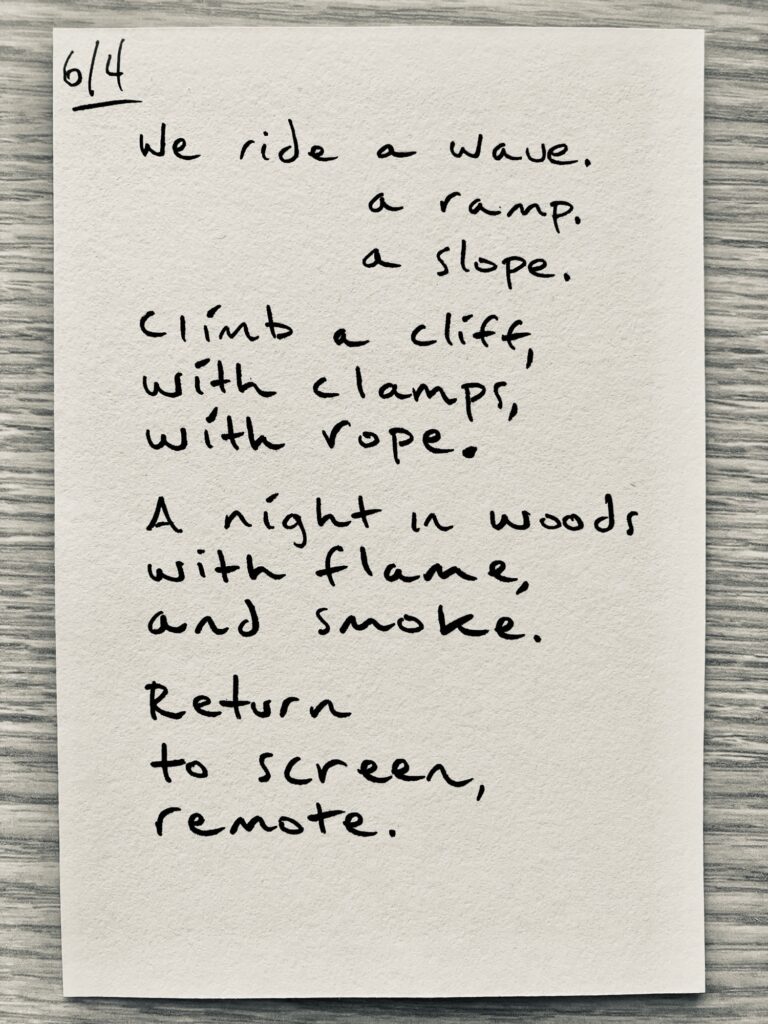 6/4
We ride a wave.
a ramp.
a slope.
Climb a cliff,
with clamps,
with rope.
A night in woods
with flame,
and smoke.
Return
to screen,
remote.